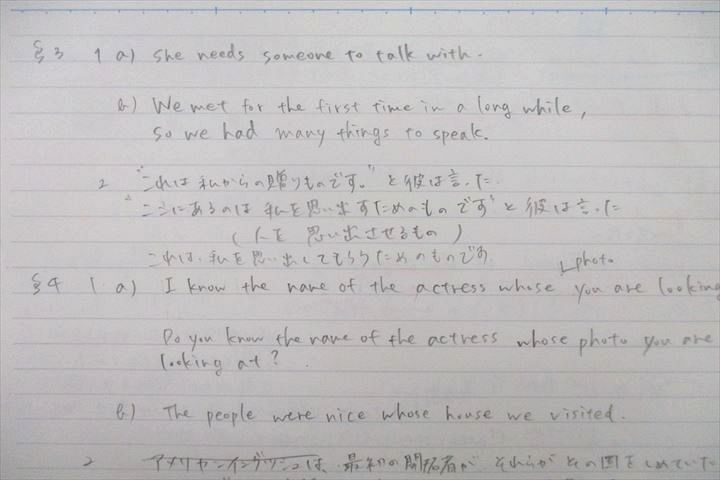 §3 1 a) She needs someone to talk with.
b) We met for the first time in a long while,
so we had many things to speak.
2 "これは私からの贈りものです。"と彼は言った.
"ここにあるのは私を思い出すためのものです"と彼は言った
(人を思い出させるもの)
これは、私を思い出してもらうためのものです
photo
§4 1 a) I know the name of the actress whose you are looking
Do you know the name of the actress whose photo you are
looking at?
b) The people were nice whose house we visited.
2 アメリカンイングリッシュは、最初の開拓者が それらが その国をしめていた